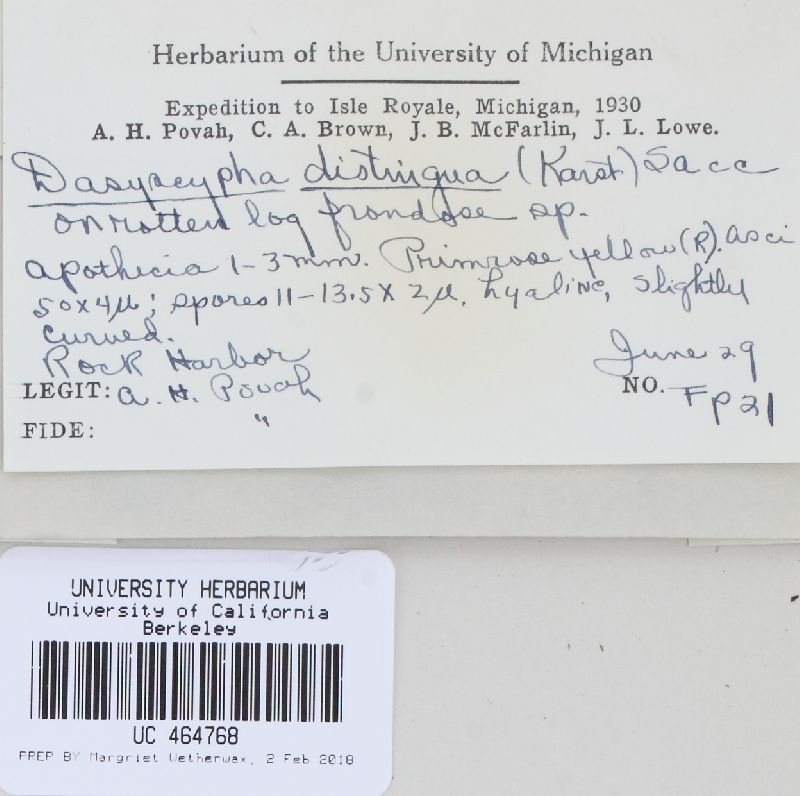 Herbarium of the University of Michigan
Expedition to Isle Royale, Michigan, 1930
A. H. Povah, C. A. Brown, J. B. McFarlin, J. L. Lowe.
Dasyscypha distingua (Karst) Sacc
on rotten log frondose sp.
apothecia 1-3mm. Primrose yellow (R). asci
50x4μ; spores 11-13.5 x 2μ, hyaline, slightly
curved.
Rock Harbor June 29
LEGIT: A. H. Povah NO. Fp 21
FIDE: "
UNIVERSITY HERBARIUM
University of California
Berkeley
UC 464768
PREP BY Margriet Wetherwax, 2 Feb 2018